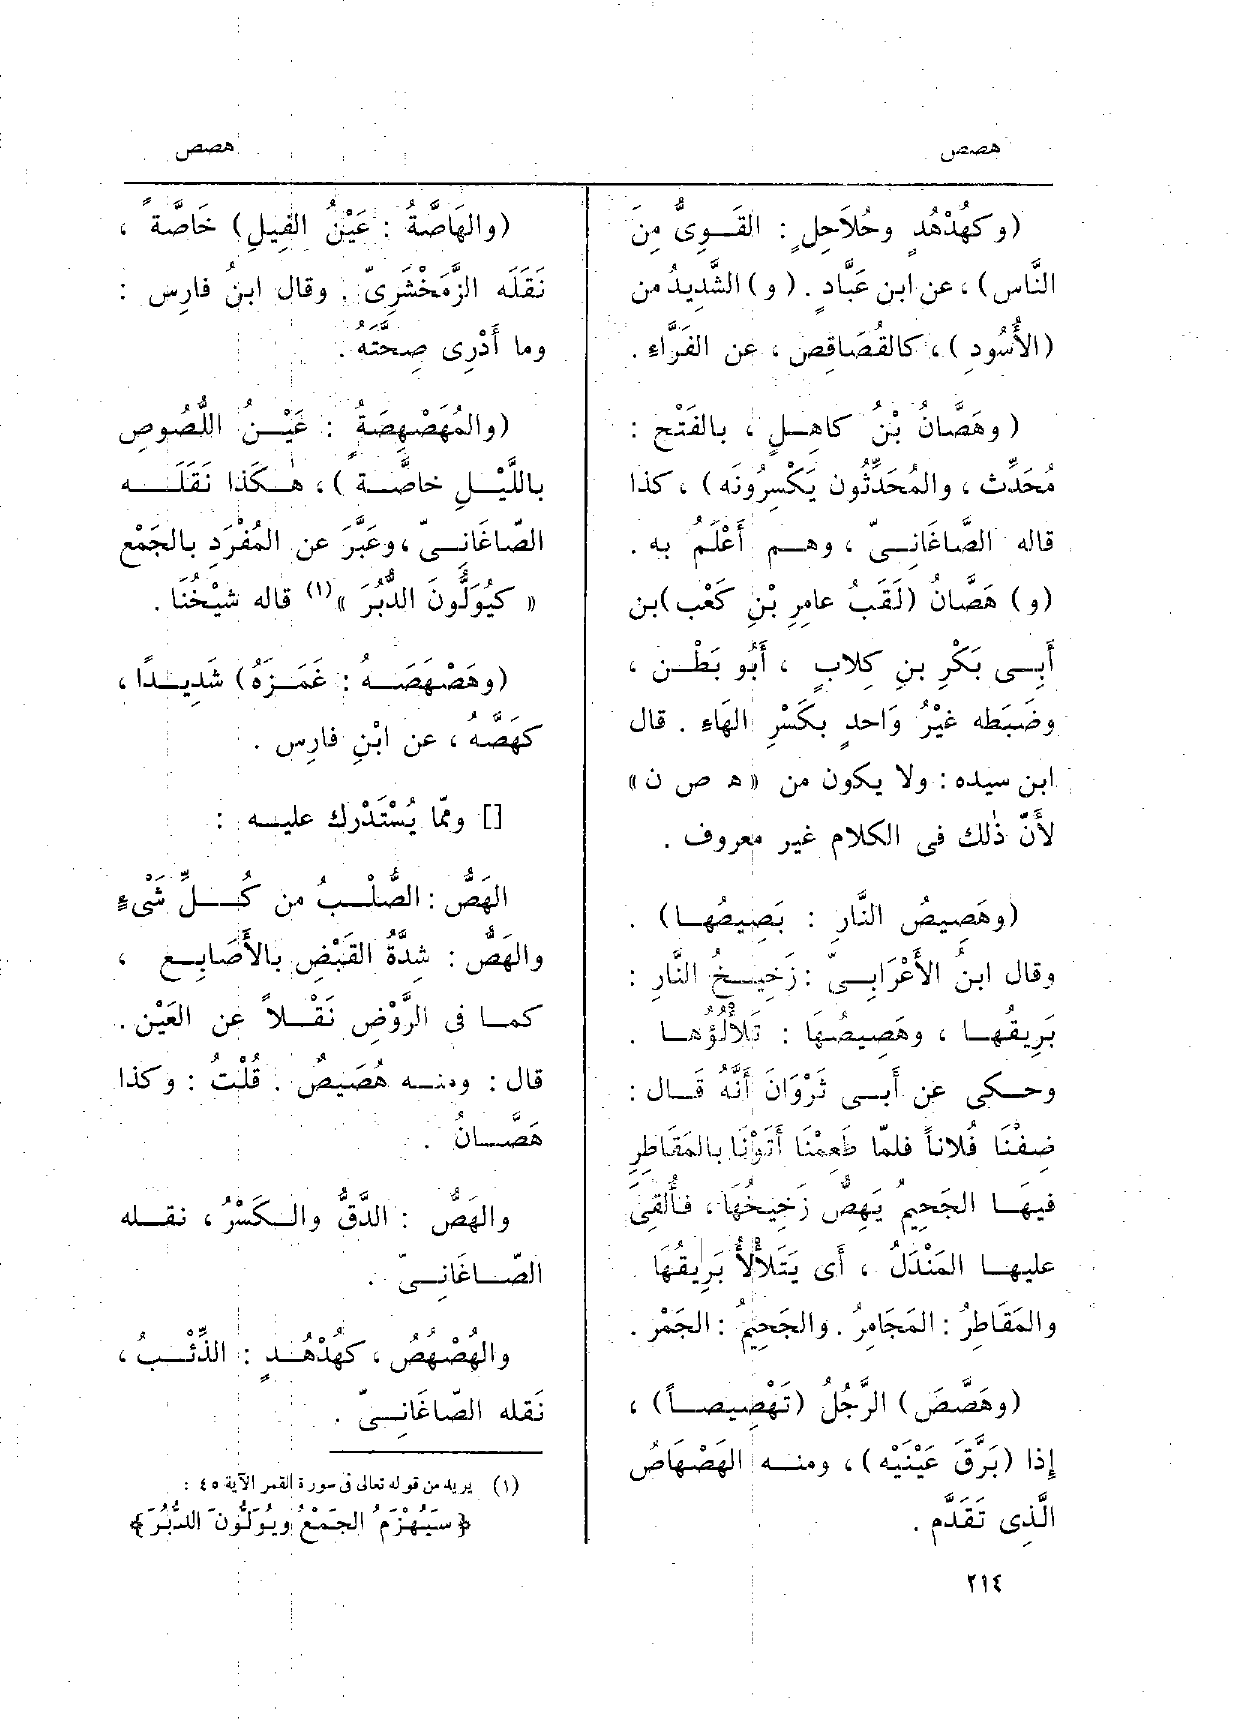 هصص
هصص
(وكهُدْهُدٍ وحُلَاحِلٍ : القَوِىُّ مِنَ
النَّاس) ، عن ابن عَبَّادٍ . (و) الشَّدِيدُ من
(الأُسُودِ) ، كالقُصَاقِصِ ، عن الفَرَّاءِ .
(وهَصَّانُ بْنُ كاهِلٍ ، بالفَتْح :
مُحَدِّث ، والمُحَدِّثُون يَكْسِرُونَه) ، كذا
قاله الصَّاغَانِيّ ، وهم أَعْلَمُ به .
(و) هَصَّانُ (لَقَبُ عامِرِ بْنِ كَعْب) بن
أَبِى بَكْرِ بنِ كِلابٍ ، أَبُو بَطْن ،
وضَبَطه غَيْرُ وَاحدٍ بكَسْرِ الهَاءِ . قال
ابن سيده : ولا يكون من « ه ص ن »
لأَنّ ذٰلك فى الكلام غير معروف .
(وهَصِيصُ النَّارِ : بَصِيصُها) .
وقال ابنُ الأَعْرَابِىّ : زَخِيخُ النَّارِ :
بَرِيقُها ، وهَصِيصُهَا : تَلَأْلُؤُها .
وحكى عن أَبى ثَرْوَانَ أَنَّهُ قَال :
ضِفْنَا فُلاناً فلمّا طَعِمْنَا أَتَوْنَا بالمَقَاطِرِ
فيهَا الجَحِيمُ يَهِصُّ زَخِيخُهَا ، فأُلْقِىَ
عليها المَنْدَلُ ، أَى يَتَلَأْلَأُ بَرِيقُهَا
والمَقَاطِرُ : المَجَامِرُ . والجَحِيمُ : الجَمْر .
(وهَصَّصَ) الرَّجُلُ (تَهْصِيصاً) ،
إذا (بَرَّقَ عَيْنَيْه) ، ومنه الهَصْهَاصُ
الَّذِى تَقَدَّم .
(والهَاصَّةُ : عَيْنُ الفِيلِ) خَاصَّةً ،
نَقَلَه الزَّمَخْشَرِىّ . وقال ابنُ فارِس :
وما أَدْرِى صِحَّتَهُ .
(والمُهَصْهِصَةُ : عَيْنُ اللُّصُوصِ
باللَّيْلِ خاصَّة) ، هٰكَذا نَقَلَه
الصّاغَانِىّ ، وعَبَّرَ عن المُفْرَدِ بالجَمْع
« كيُوَلُّونَ الدُّبُرَ »(١) قاله شَيْخُنَا .
(وهَصْهَصَهُ : غَمَزَهُ) شَدِيدًا ،
كهَصَّهُ ، عن ابْنِ فارِس .
[] وممّا يُسْتَدْرك عليه :
الهَصُّ : الصُّلْبُ من كُلِّ شَىْءٍ
والهَصُّ : شِدَّةُ القَبْضِ بالأَصَابِع ،
كما فى الرَّوْضِ نَقْلاً عن العَيْن .
قال : ومنه هُصَيصٌ . قُلْتُ : وكذا
هَصَّانُ .
والهَصُّ : الدَّقُّ والكَسْرُ ، نقله
الصّاغَانِىّ .
والهُصْهُصُ ، كهُدْهُدٍ : الذِّئْبُ ،
نَقله الصّاغَانِىّ .
(١) يريد من قوله تعالى فى سورة القمر الآية ٤٥ :
﴿سَيُهْزَمُ الجَمْعُ ويُوَلُّونَ الدُّبُرَ﴾
٢١٤